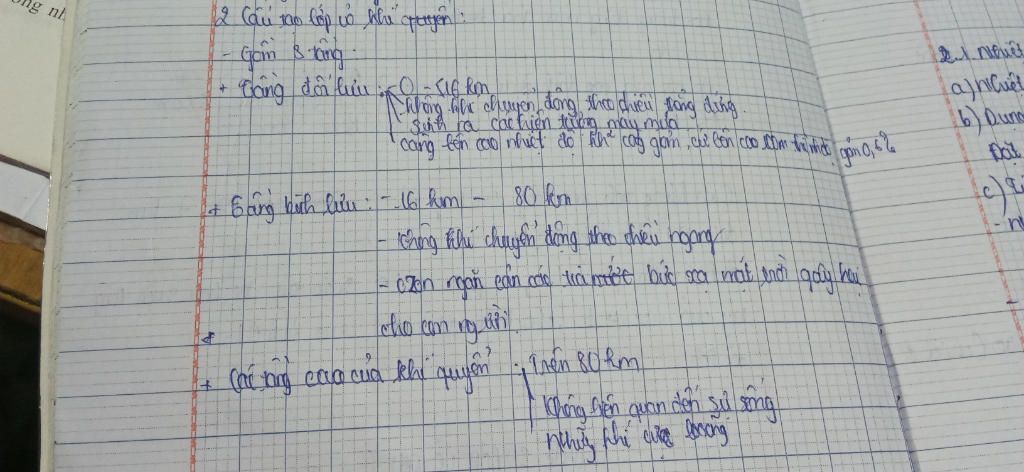 ng nh
2 Cấu tạo lớp vỏ khí quyển:
- Gồm 3 tầng.
+ Tầng đối lưu: - 0 - 16 km
- không khí chuyển động theo chiều thẳng đứng.
sinh ra các hiện tượng mây mưa
càng lên cao nhiệt độ khí càng giảm, cứ lên cao 100m giảm 0,6
+ Tầng bình lưu: - 16 km - 80 km
- không khí chuyển động theo chiều ngang
- ozon ngăn cản các bức xạ mặt trời gây hại
cho con người
+ Các tầng cao của khí quyển: Trên 80 km
không liên quan đến sự sống
những khí cực loãng
2.1. Nhiệt
a) Nhiệt
b) Dụng
Đặt
c)